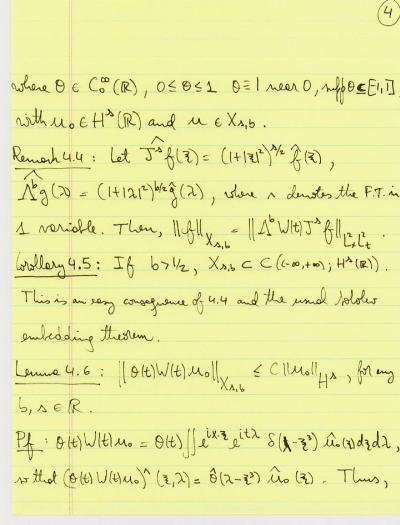 4
where θ ∈ C₀^∞(ℝ), 0≤θ≤1 θ≡1 near 0, supp θ ⊆ [-1,1],
with u₀ ∈ H^s(ℝ) and u ∈ X_{s,b}.
Remark 4.4 : Let \widehat{J^s f}(ξ) = (1+|ξ|²)^{s/2} \hat{f}(ξ),
\widehat{Λ^b g}(λ) = (1+|λ|²)^{b/2} \hat{g}(λ), where ^ denotes the F.T. in
1 variable. Then, ||f||_{X_{s,b}} = ||Λ^b W(t) J^s f||_{L²_x L²_t}.
Corollary 4.5 : If b > 1/2, X_{s,b} ⊂ C((-∞,+∞); H^s(ℝ)).
This is an easy consequence of 4.4 and the usual Sobolev
embedding theorem.
Lemma 4.6 : ||θ(t)W(t)u₀||_{X_{s,b}} ≤ C||u₀||_{H^s}, for any
b, s ∈ ℝ.
Pf : θ(t)W(t)u₀ = θ(t)∬e^{ix·ξ}e^{itλ} δ(λ-ξ³) û₀(ξ)dξdλ,
so that (θ(t)W(t)u₀)^(ξ,λ) = \hat{θ}(λ-ξ³) û₀(ξ). Thus,